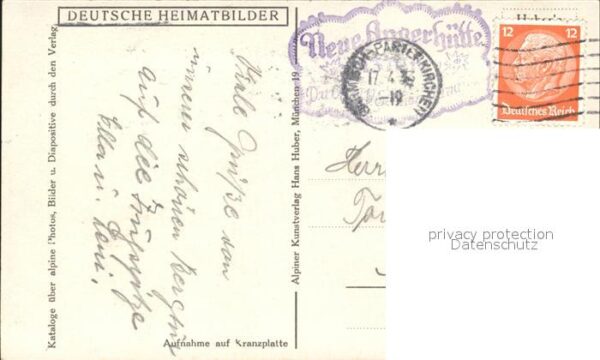 DEUTSCHE HEIMATBILDER
Kataloge über alpine Photos, Bilder u. Diapositive durch den Verlag.
Viele Grüße von
unserer schönen Bergtour
auf die Zugspitze
Ella u. Leni.
Aufnahme auf Kranzplatte
Alpiner Kunstverlag Hans Huber, München 19
Neue Angerhütte
GARMISCH-PARTENKIRCHEN
17.4.
-19
12 12
Deutsches Reich
Herr
privacy protection
Datenschutz